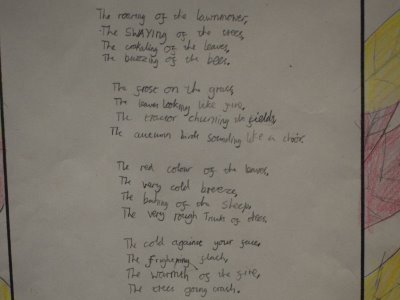 The roaring of the lawnmower,
The SWAYING of the trees,
The crackling of the leaves,
The buzzing of the bees.
The frost on the grass,
The leaves looking like
The tractor churning the fields,
The autumn birds sounding like a choir.
The red colour of the leaves,
The very cold breeze,
The baaing of the sheep,
The very rough Trunks of trees.
The cold against your face,
The
The warmth of the fire,
The trees going crash.